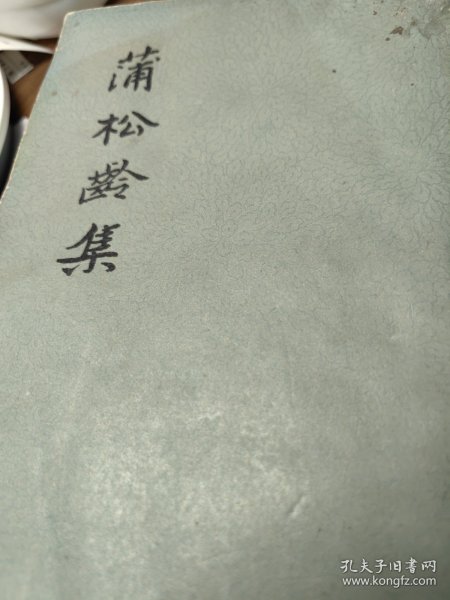 蒲松齡集
孔夫子旧书网
www.kongfz.com